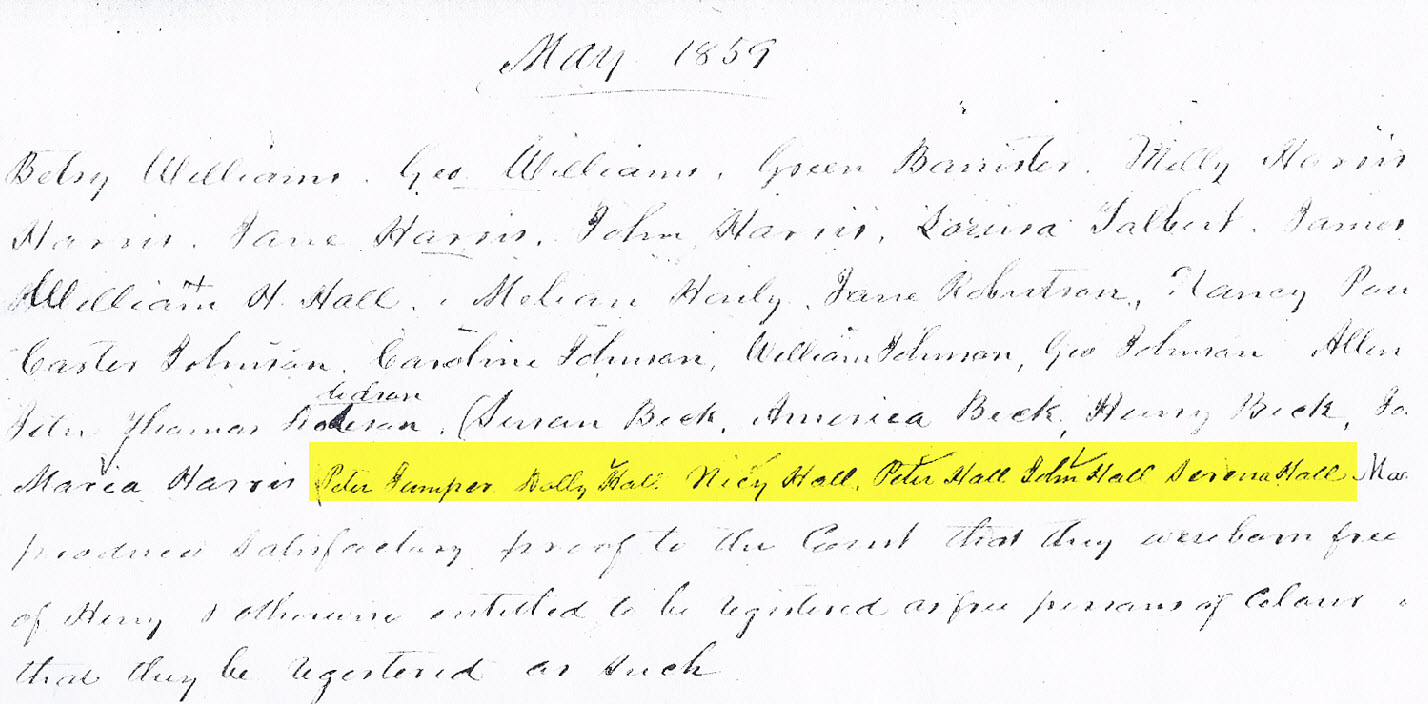 May 1859
Betsy Williams. Geo Williams, Green Barrister. Milly Harris
Harris. Jane Harris, John Harris, Louisa Talbert. James
William H. Hall. Jane Robertson, Nancy
Caster Johnson, Caroline Johnson, William Johnson, Geo Johnson Allen
dedson
Thomas (Susan Beck, America Beck, Henry Beck,
Maria Harris (Peter Jumper Holly Hall Nicy Hall, Peter Hall John Hall Serena Hall
produced satisfactory proof to the Court that they were born free
of Henry & otherwise entitled to be registered as free persons of Colour
that they be registered as such